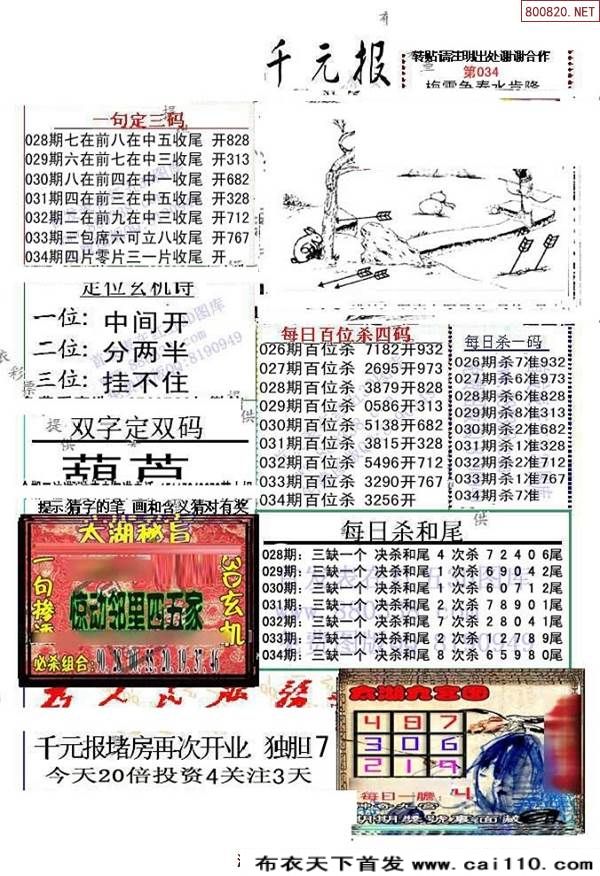 800820.NET
千元报
转贴请注明出处谢谢合作
第034
一句定三码
028期七在前八在中五收尾 开828
029期六在前七在中三收尾 开313
030期八在前四在中一收尾 开682
031期四在前三在中五收尾 开328
032期三在前九在中三收尾 开712
033期三包席六可立八收尾 开767
034期四片零片三一片收尾 开
定位玄机诗
一位: 中间开
二位: 分两半
三位: 挂不住
每日百位杀四码
026期百位杀 7182开932
027期百位杀 2695开973
028期百位杀 3879开828
029期百位杀 0586开313
030期百位杀 5138开682
031期百位杀 3815开328
032期百位杀 5496开712
033期百位杀 3290开767
034期百位杀 3256开
每日杀一码
026期杀7准932
027期杀6准973
028期杀6准828
029期杀8准313
030期杀2准682
031期杀1准328
032期杀2准712
033期杀1准767
034期杀7准
双字定双码
葫芦
提示:猜字的笔 画和含义猜对有奖
太湖秘旨
惊动邻里四五家
3D玄机
必杀组合:
每日杀和尾
028期: 三缺一个 决杀和尾 4 次杀 7 2 4 0 6尾
029期: 三缺一个 决杀和尾 1 次杀 6 9 0 4 2尾
030期: 三缺一个 决杀和尾 1 次杀 6 0 7 1 2尾
031期: 三缺一个 决杀和尾 2 次杀 7 8 9 0 1尾
032期: 三缺一个 决杀和尾 7 次杀 2 8 0 4 1尾
033期: 三缺一个 决杀和尾 2 次杀 0 2 7 8 9尾
034期: 三缺一个 决杀和尾 8 次杀 5 9 8 0 2尾
千元报堵房再次开业 独胆7
今天20倍投资4关注3天
太湖九宫图
4 8 7
3 0 6
2 1 9
每日一胆: 4
布衣天下首发 www.cai110.com